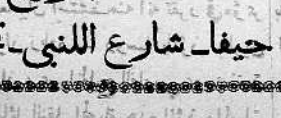 حيفا ـ شارع اللنبي ـ